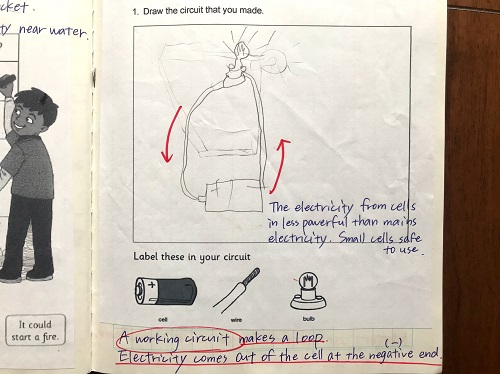 cket.
ty near water.
It could
start a fire.
1. Draw the circuit that you made.
The electricity from cells
in less powerful than mains
electricity. Small cells safe
to use.
Label these in your circuit
+
cell
wire
bulb
A working circuit makes a loop.
(-)
Electricity comes out of the cell at the negative end.